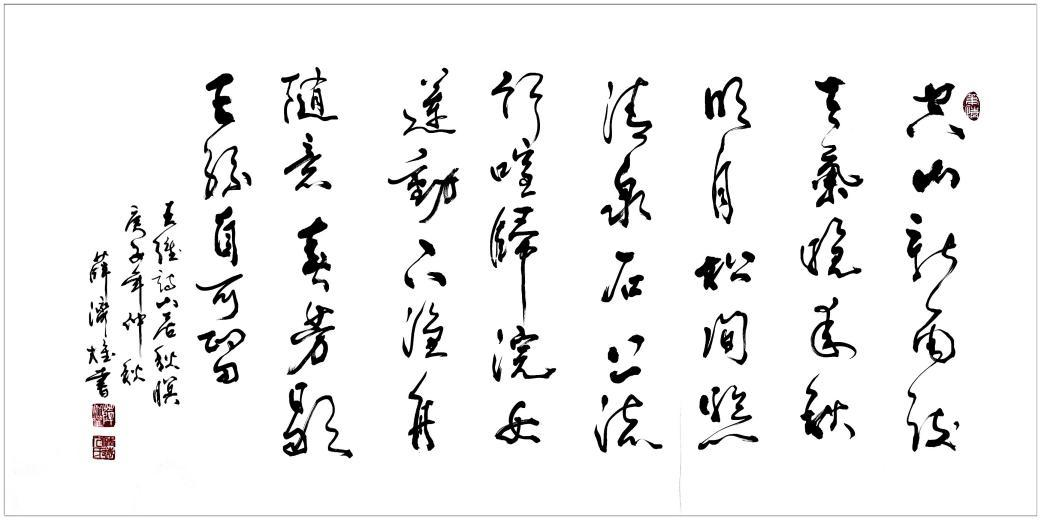 空山新雨後
天氣晚來秋
明月松間照
清泉石上流
竹喧歸浣女
蓮動下漁舟
隨意春芳歇
王孫自可留
王維詩山居秋暝
庚子年仲秋
薛濟書